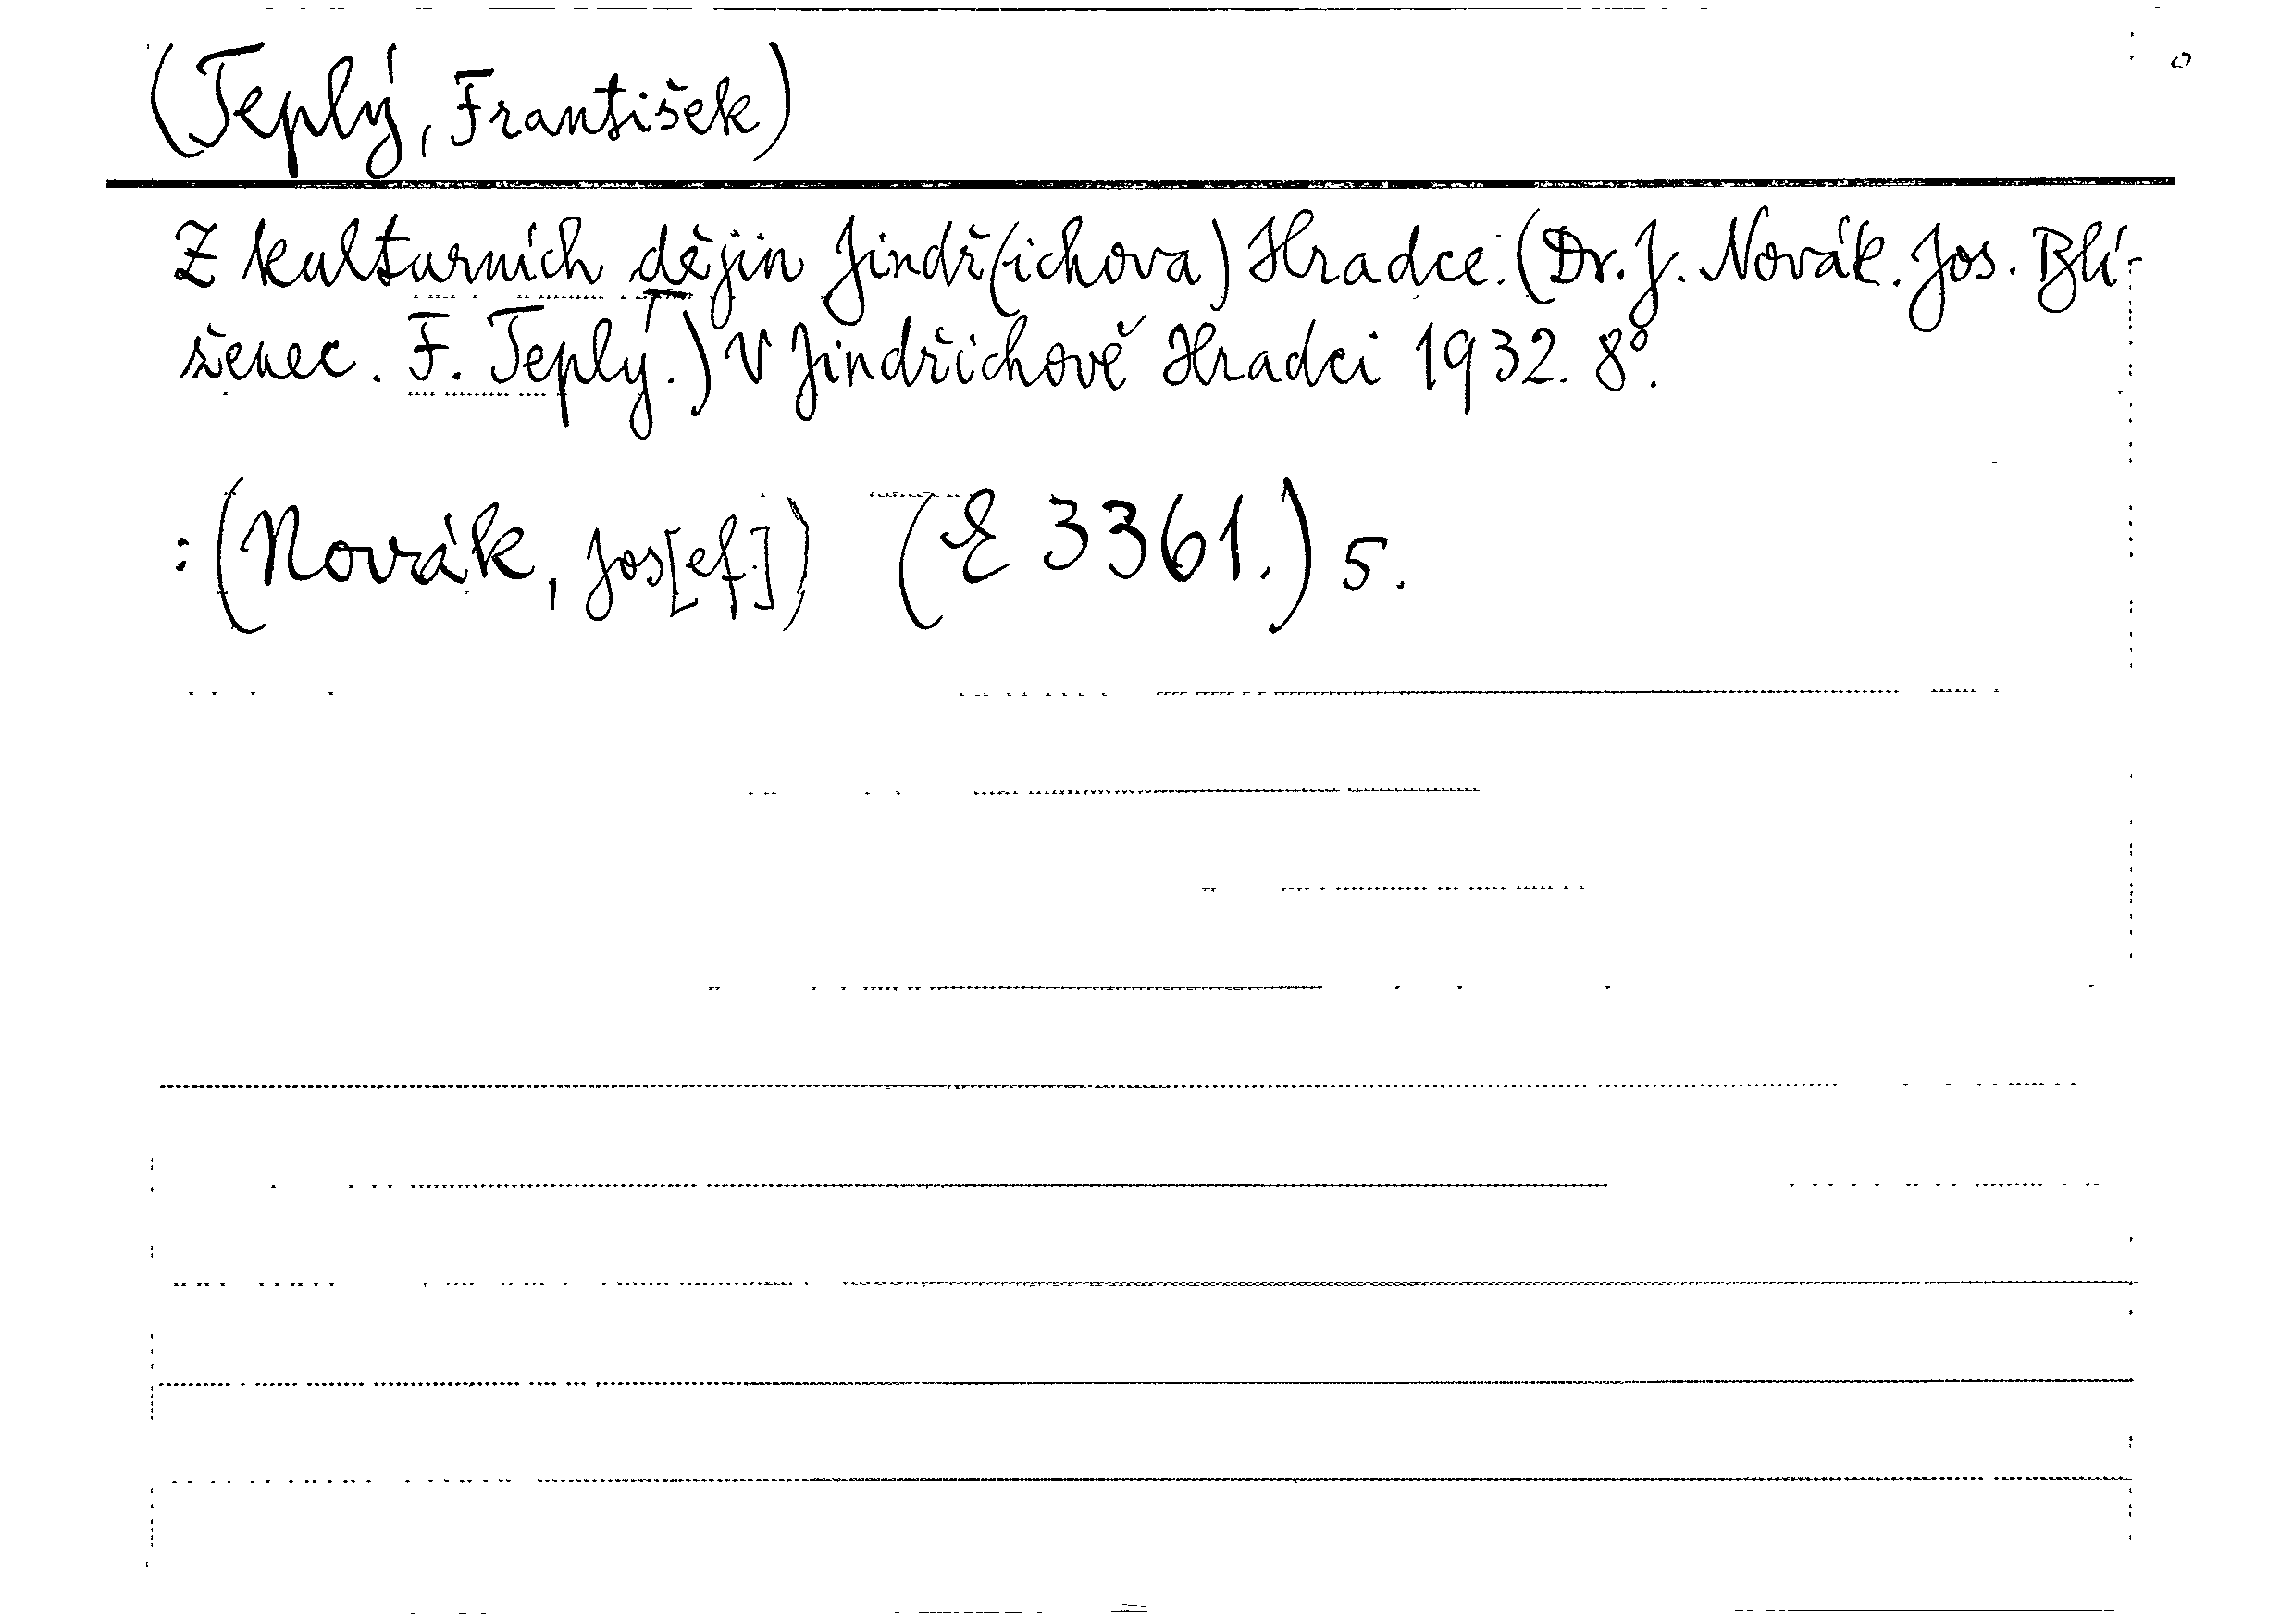 (Teplý, František)
Z kulturních dějin Jindř(ichova) Hradce. (Dr. J. Novák. Jos. Blí-
ženec. F. Teplý.) V Jindřichově Hradci 1932. 8°.
: (Novák, Jos[ef.]) (E 3361.) 5.